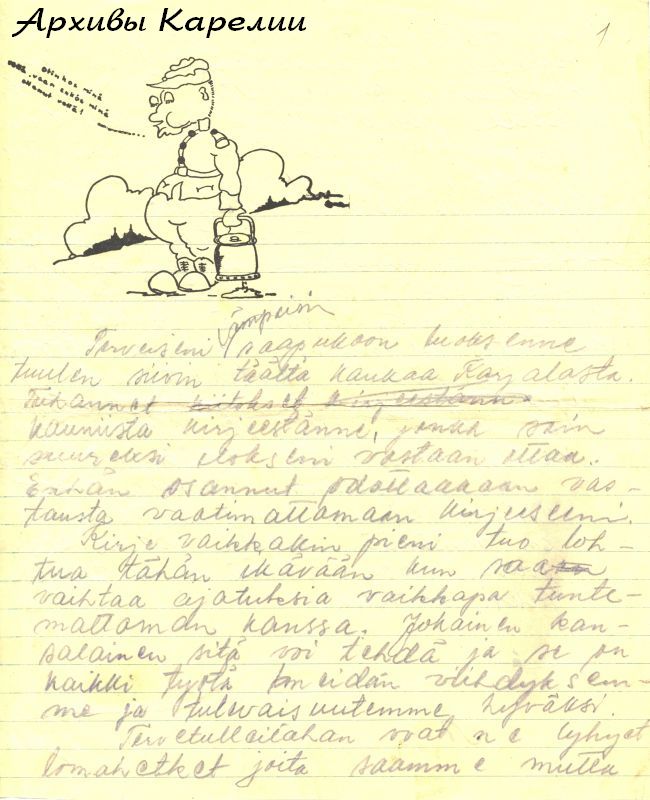 Архивы Карелии
1
Otinkos minä
vettä, vaan enkös minä
ottanut vettä!
lämpösin
Terveiseni saapukoon luoksenne
tuulen siivin täältä kaukaa Karjalasta.
Tuhannet kiitokset kirjeestänne
kauniista kirjeestänne, jonka sain
suureksi ilokseni vastaan ottaa.
Enhän osannut odottaakaan vas-
tausta vaatimattomaan kirjeeseeni.
Kirje vaikkakin pieni tuo loh-
tua tähän ikävään kun saa
vaihtaa ajatuksia vaikkapa tunte-
mattoman kanssa. Jokainen kan-
salainen sitä voi tehdä ja se on
kaikki työtä meidän viihdyksem-
me ja tulevaisuutemme hyväksi.
Tervetulleitahan ovat ne lyhyet
lomahetket joita saamme mutta